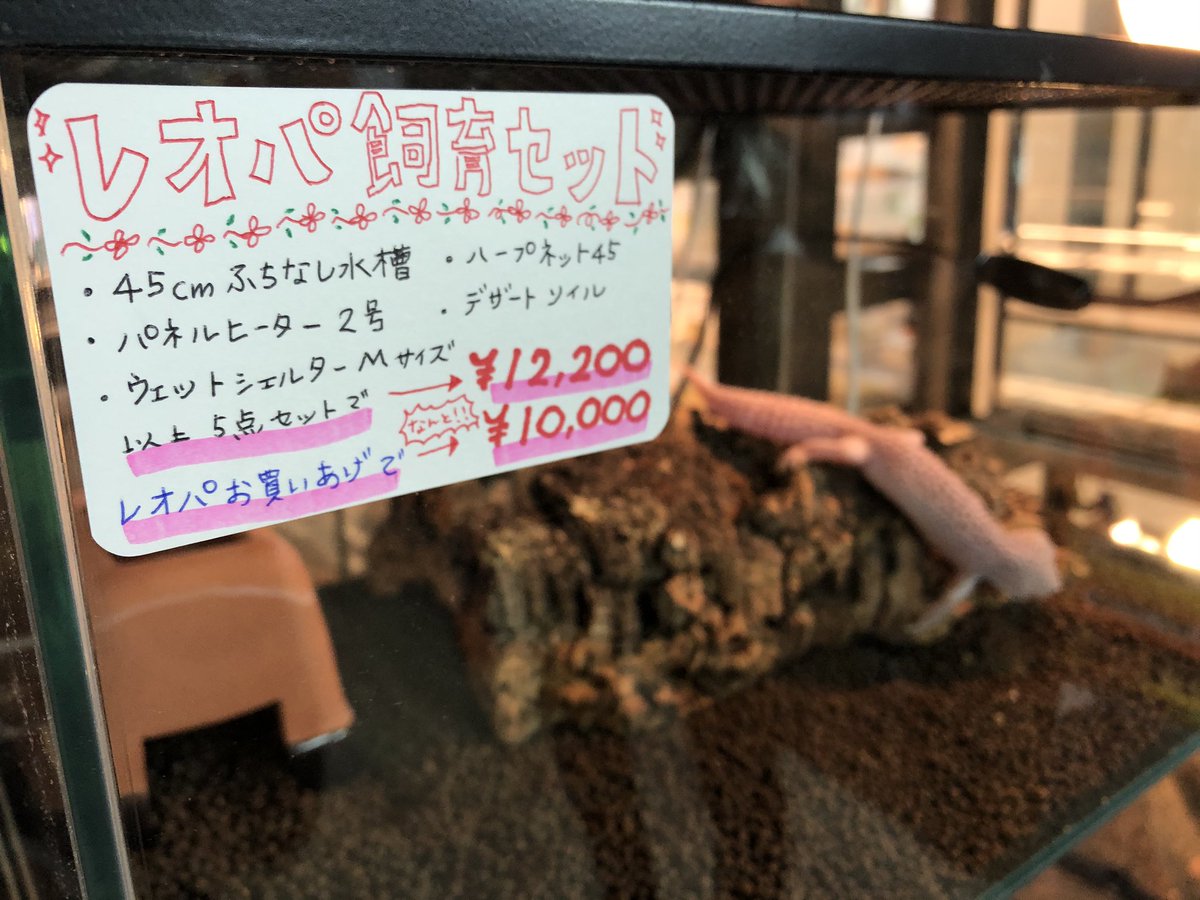 レオパ飼育セット
・45cmふちなし水槽
・ハープネット45
・パネルヒーター2号
・デザートソイル
・ウェットシェルターMサイズ
以上5点セットで → ¥12,200
なんと!!
レオパお買いあげで → ¥10,000